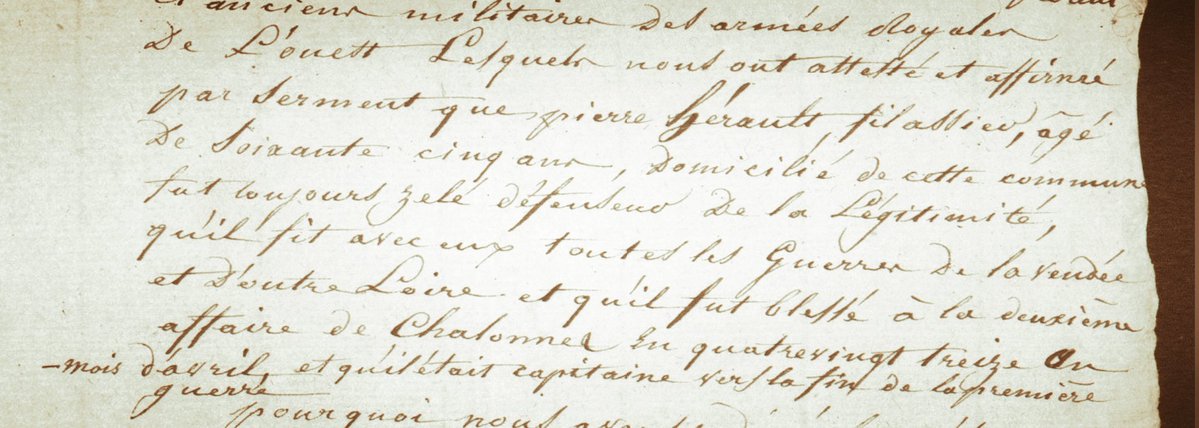 et anciens militaires des armées Royales
De L'ouest Lesquels nous ont attesté et affirmé
par serment que pierre hérault, filassier, âgé
De soixante cinq ans, Domicilié de cette commune
fut toujours zelé défenseur De la Légitimité,
qu'il fit avec eux toutes les Guerres De la vendée
et D'outre Loire et qu'il fut blessé à la deuxième
affaire de Chalonnes En quatrevingt treize au
-mois d'avril, et qu'il était capitaine vers la fin de la première
guerre
pourquoi nous